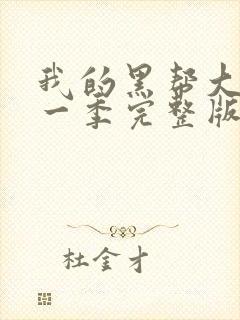 我的黑帮大
一季完整版
杜金才